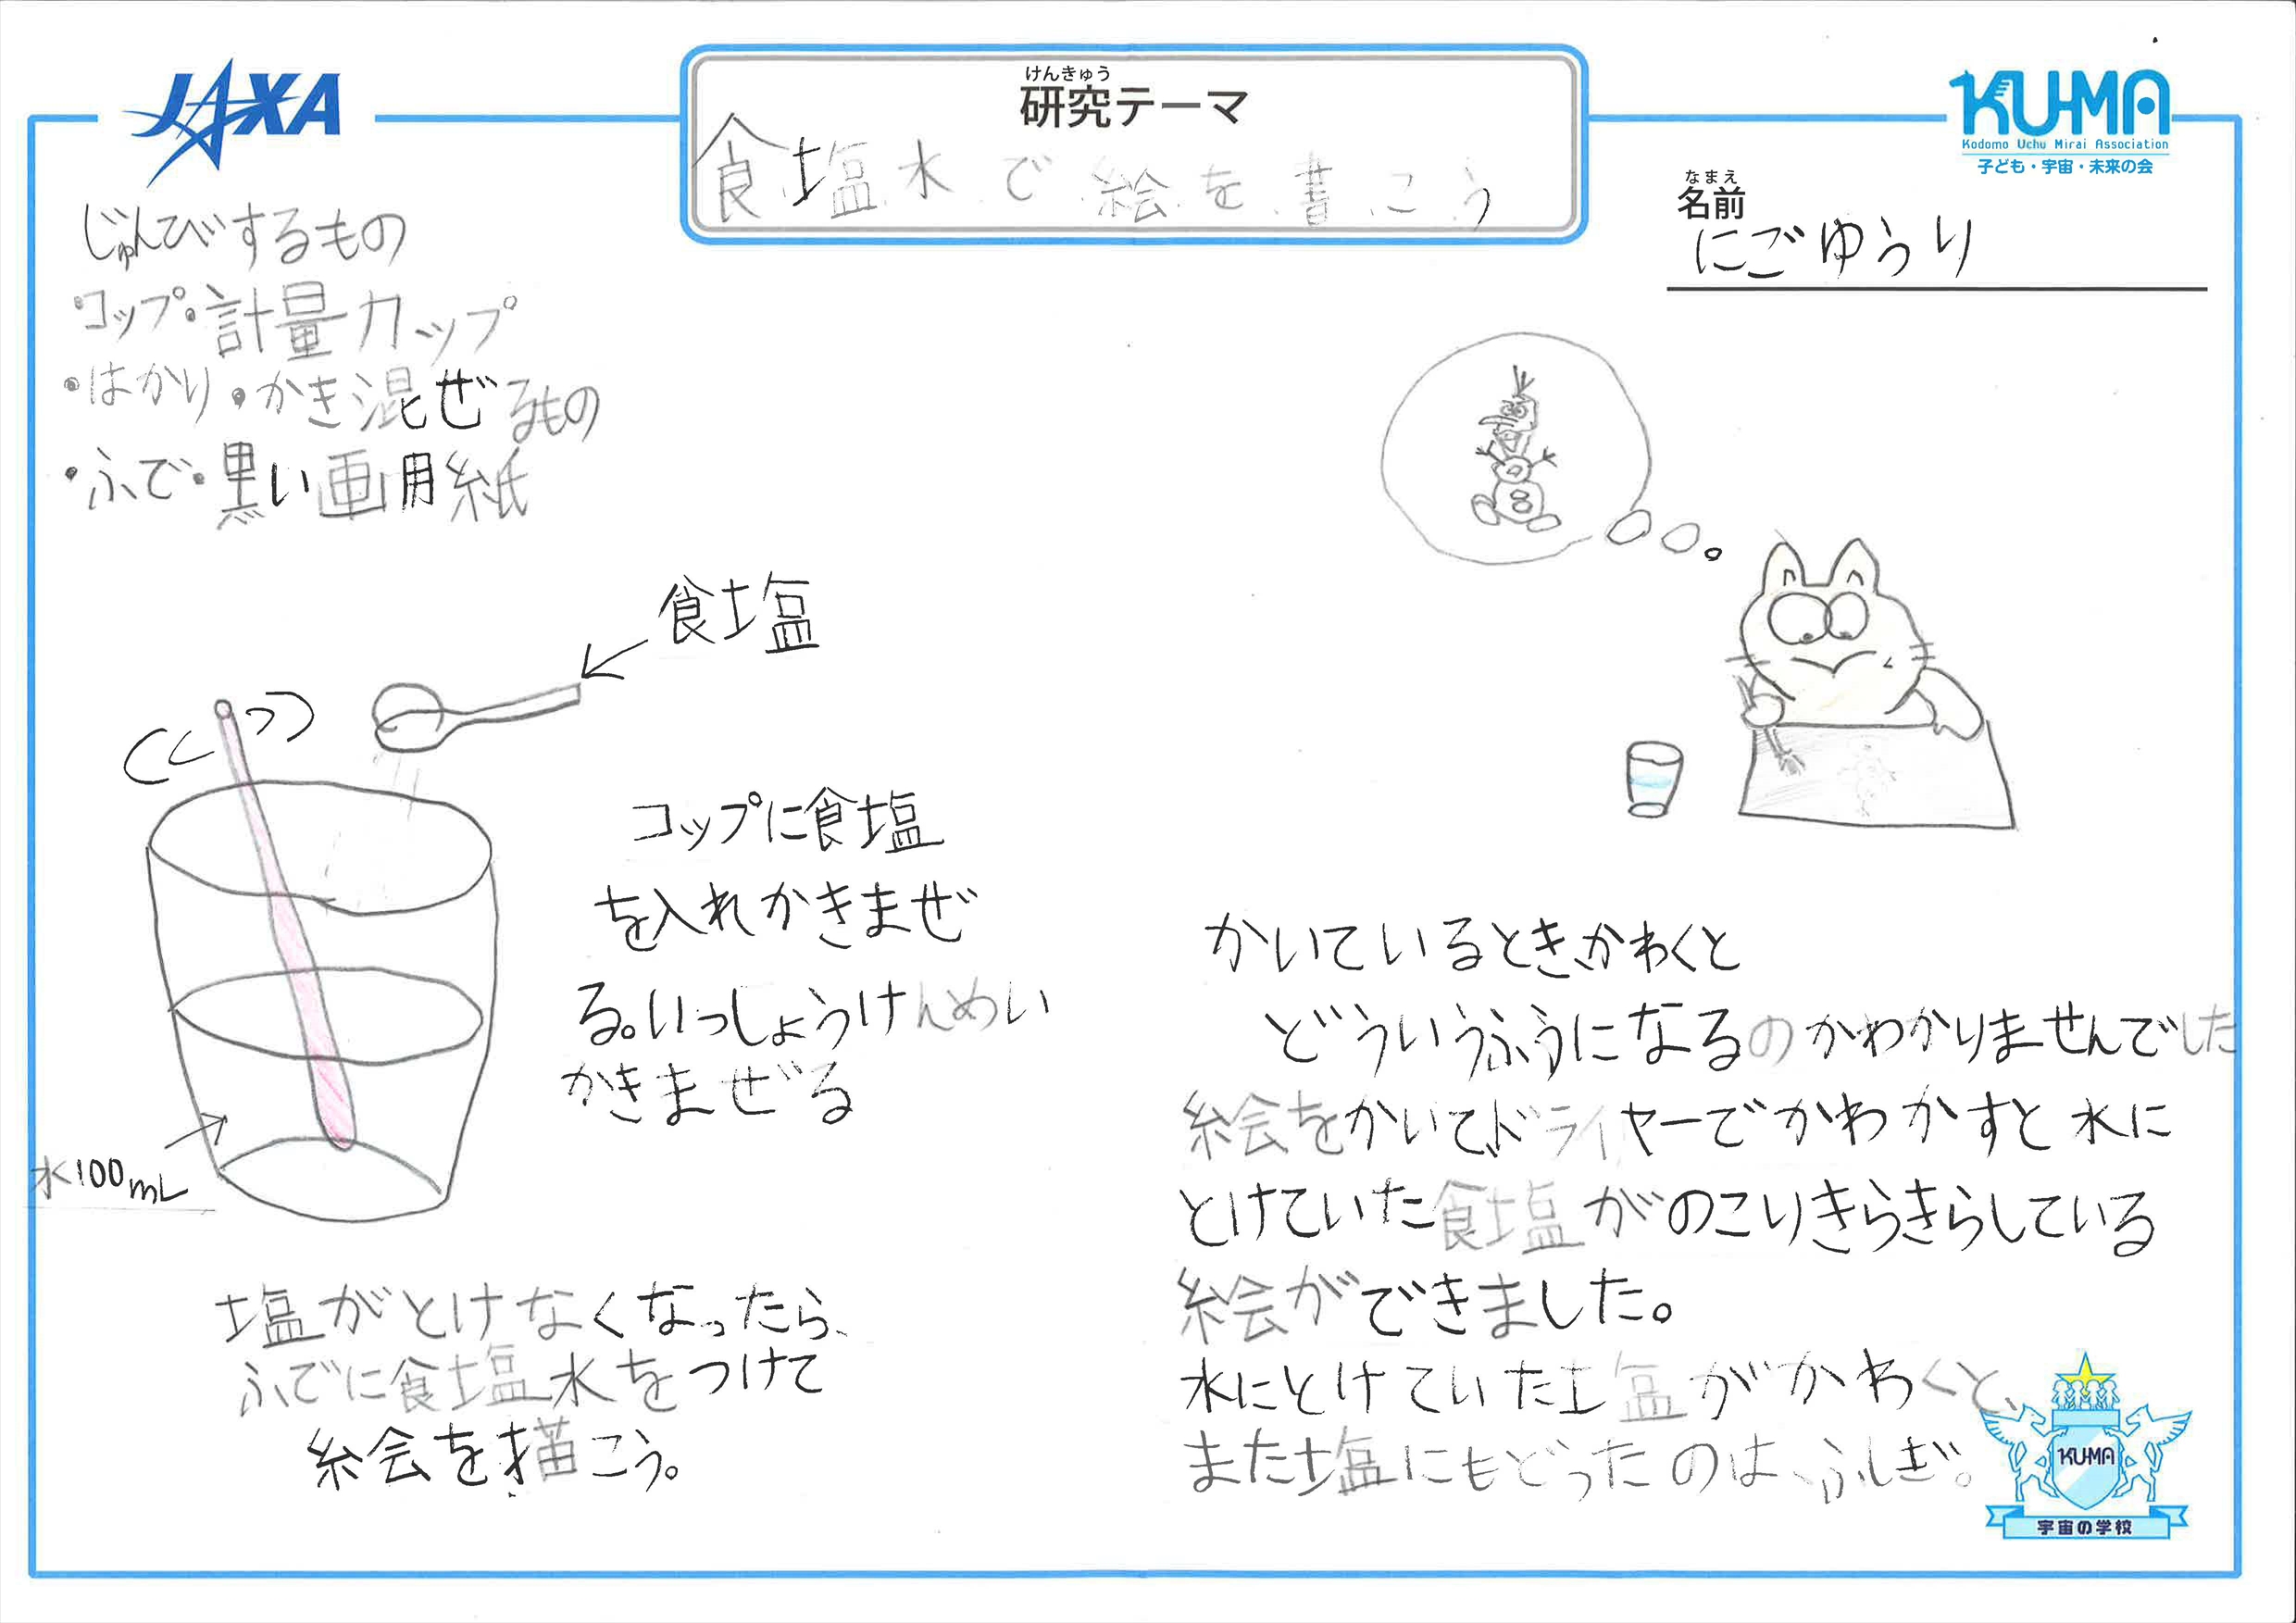 JAXA
けんきゅう
研究テーマ
食塩水で絵を書こう
KU-MA
Kodomo Uchu Mirai Association
子ども・宇宙・未来の会
なまえ
名前
にごゆうり
じゅんびするもの
・コップ・計量カップ
・はかり・かき混ぜるもの
・ふで・黒い画用紙
食塩
コップに食塩
を入れかきまぜ
る。いっしょうけんめい
かきまぜる
水100mL
塩がとけなくなったら、
ふでに食塩水をつけて
絵を描こう。
かいているときかわくと
どういうふうになるのかわかりませんでした
絵をかいて、ドライヤーでかわかすと水に
とけていた食塩がのこりきらきらしている
絵ができました。
水にとけていた塩がかわくと、
また塩にもどったのは、ふしぎ。
KUMA
宇宙の学校